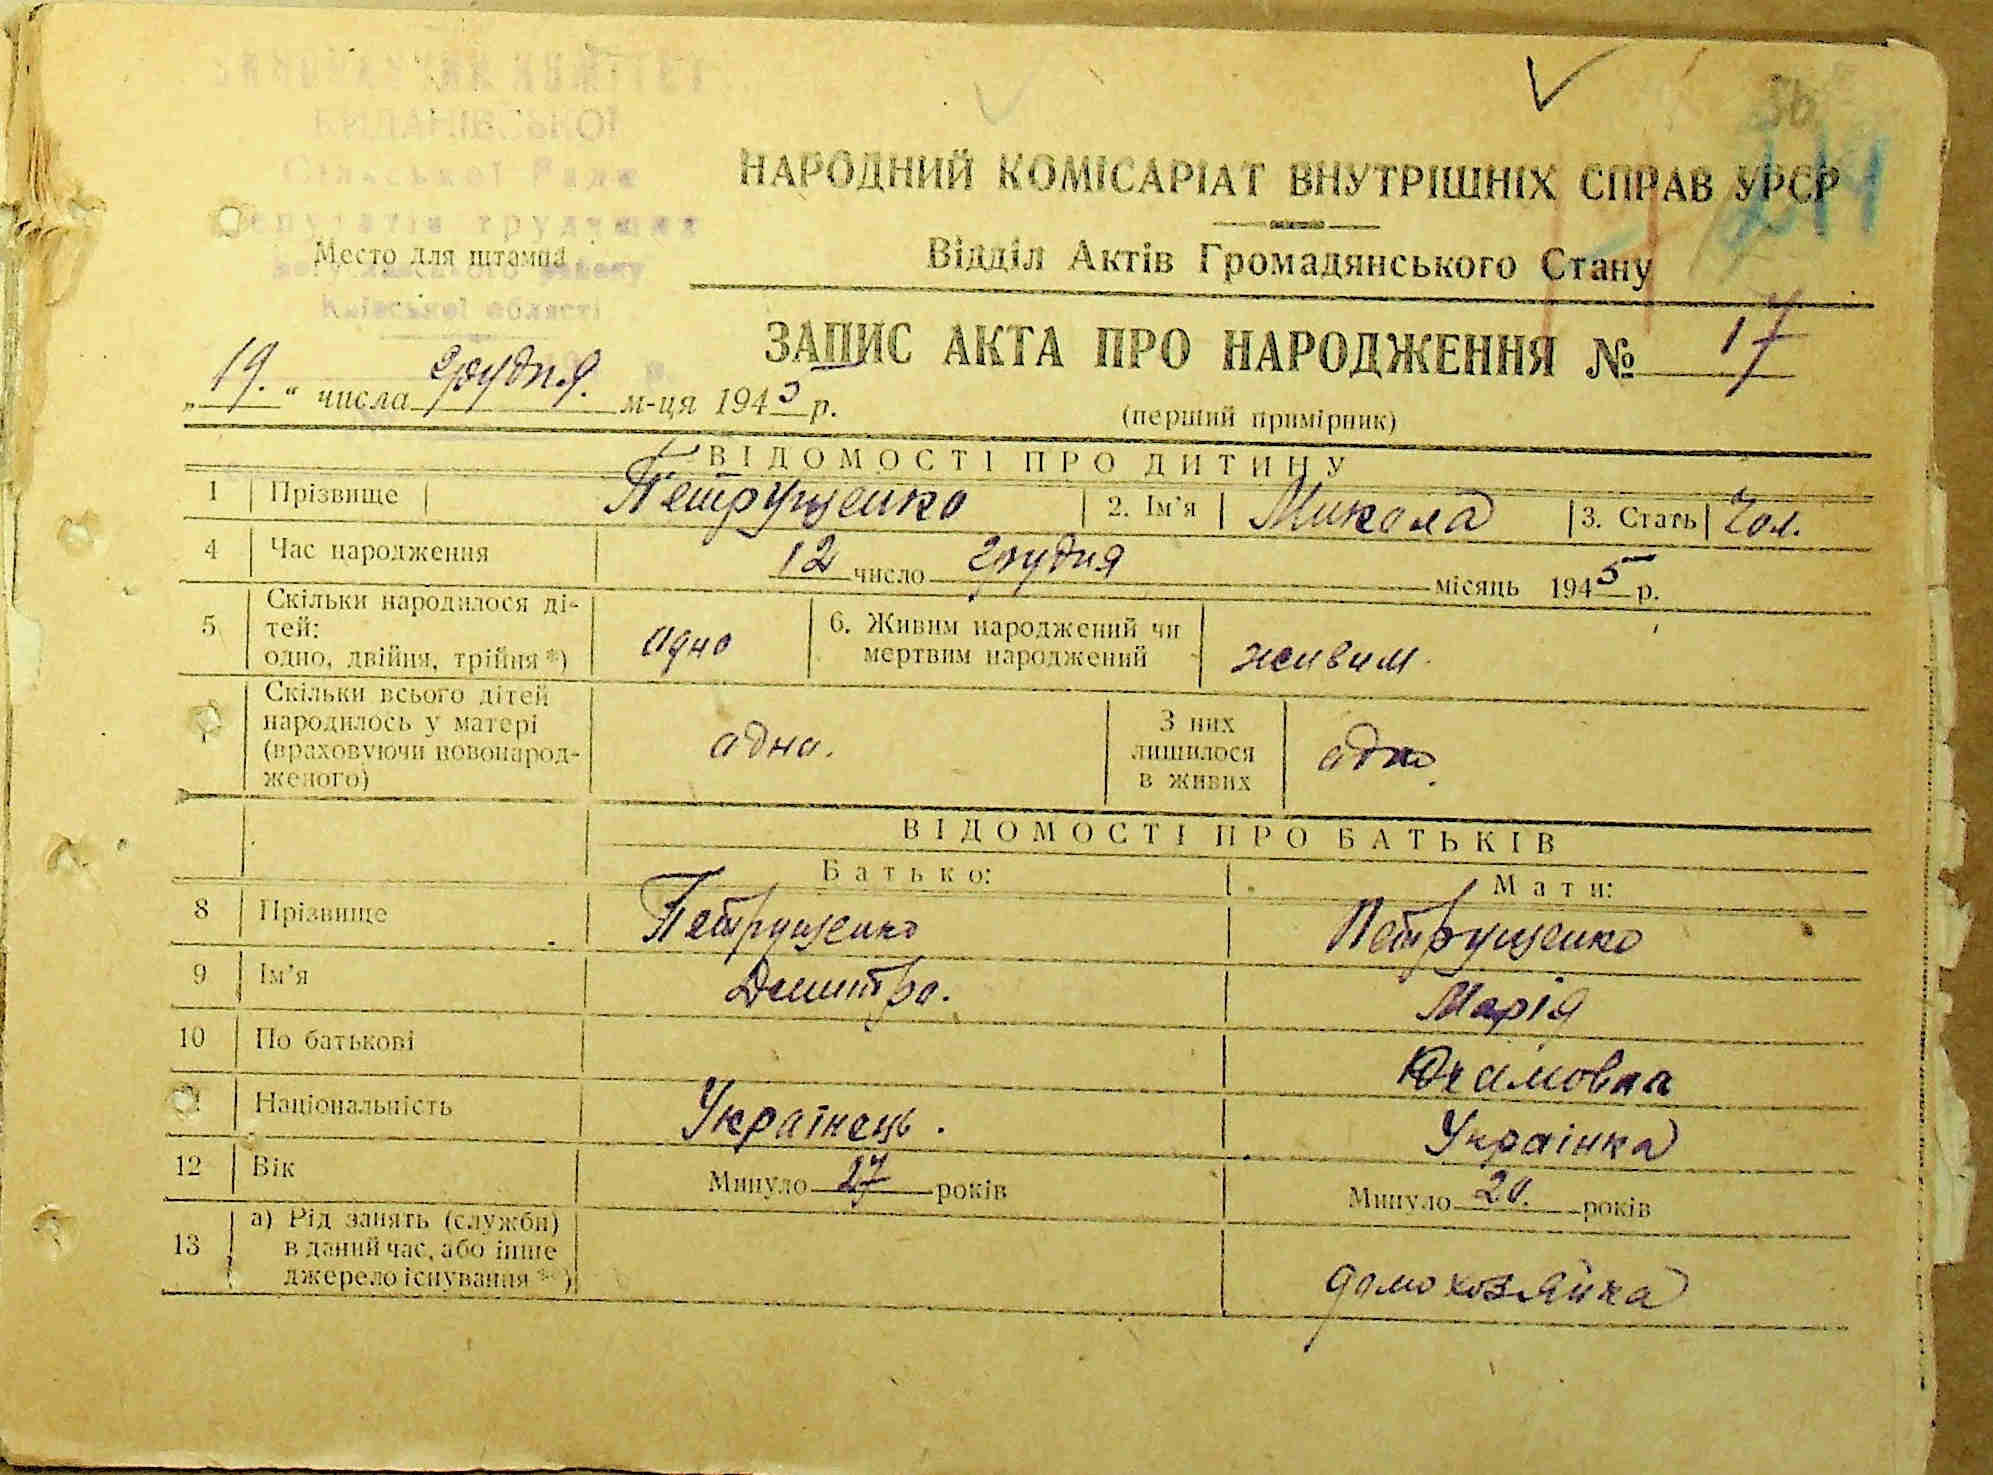 ВИКОНАВЧИЙ КОМІТЕТ
Сільської Ради
депутатів трудящих
Київської області
Место для штампа
36
НАРОДНИЙ КОМІСАРІАТ ВНУТРІШНІХ СПРАВ УРСР
Відділ Актів Громадянського Стану
ЗАПИС АКТА ПРО НАРОДЖЕННЯ № 17
„19." числа грудня. м-ця 1945 р.
(перший примірник)
ВІДОМОСТІ ПРО ДИТИНУ
1 Прізвище Петрущенко 2. Ім'я Микола 3. Стать Чол.
4 Час народження 12 число грудня місяць 1945 р.
5 Скільки народилося ді-
тей:
одно, двійня, трійня *) одно 6. Живим народжений чи
мертвим народжений живим
Скільки всього дітей
народилось у матері
(враховуючи новонарод-
женого) одно. З них
лишилося
в живих одно.
ВІДОМОСТІ ПРО БАТЬКІВ
Батько: Мати:
8 Прізвище Петрущенко Петрущенко
9 Ім'я Дмитро. Марія
10 По батькові
Національність Українець. Українка
12 Вік Минуло 27 років Минуло 20. років
13 а) Рід занять (служби)
в даний час, або інше
джерело існування *) домохозяйка